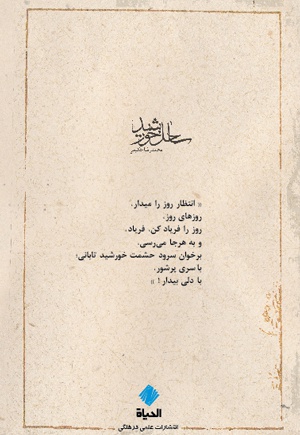 ساحل خورشید
محمدرضا حکیمی
« انتظار روز را میدار.
روزهای روز.
روز را فریاد کن، فریاد.
و به هرجا می‌رسی.
برخوان سرود حشمت خورشید تابانی؛
با سری پرشور.
با دلی بیدار! »
الحیاة
انتشارات علمی فرهنگی